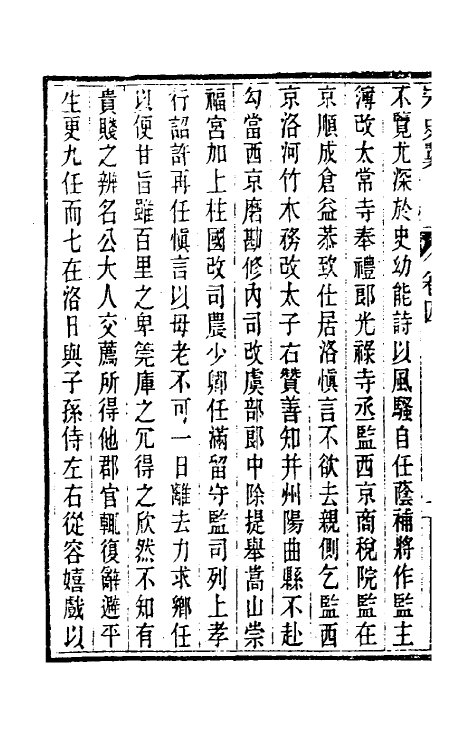 不覽尤深於史幼能詩以風騷自任蔭補將作監主
簿改太常寺奉禮郎光祿寺丞監西京商稅院監在
京順成倉益恭致仕居洛慎言不欲去親側乞監西
京洛河竹木務改太子右贊善知井州陽曲縣不赴
勾當西京磨勘修內司改虞部郎中除提舉嵩山崇
福宮加上柱國改司農少卿任滿留守監司列上孝
行詔許再任慎言以母老不可一日離去力求鄉任
以便甘旨雖百里之卑筦庫之冗得之欣然不知有
貴賤之辨名公大人交薦所得他郡官輒復辭避平
生更九任而七在洛日與子孫侍左右從容嬉戲以